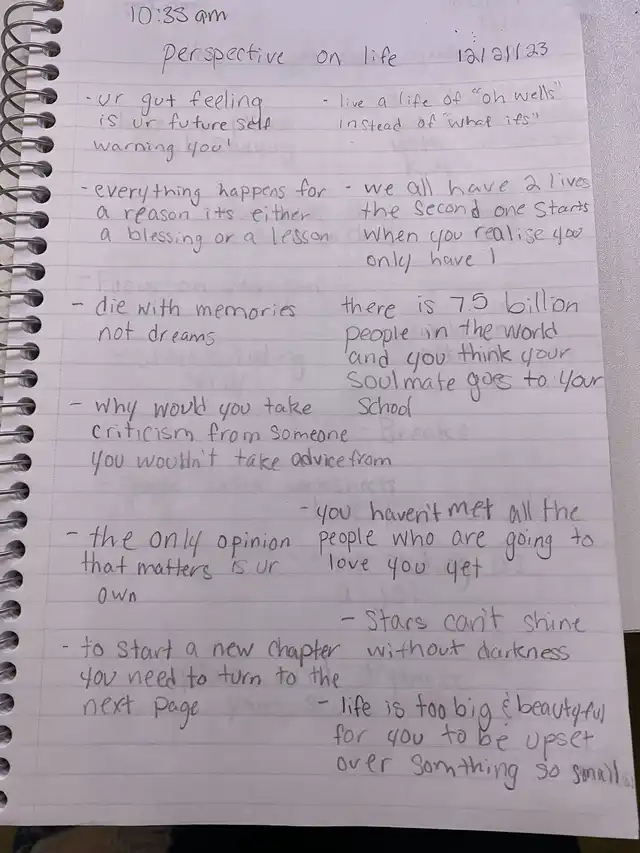 10:35 am
perspective on life 12/21/23
- ur gut feeling
is ur future self
warning you!
- everything happens for
a reason its either
a blessing or a lesson
- die with memories
not dreams
- why would you take
criticism from someone
you wouldn't take advice from
- the only opinion
that matters is ur
own
- to start a new chapter
you need to turn to the
next page
- live a life of "oh wells"
instead of "what ifs"
- we all have 2 lives
the second one starts
when you realise you
only have 1
there is 7.5 billion
people in the world
and you think your
soulmate goes to your
school
- you haven't met all the
people who are going to
love you yet
- stars can't shine
without darkness
- life is too big & beautyful
for you to be upset
over somthing so small.